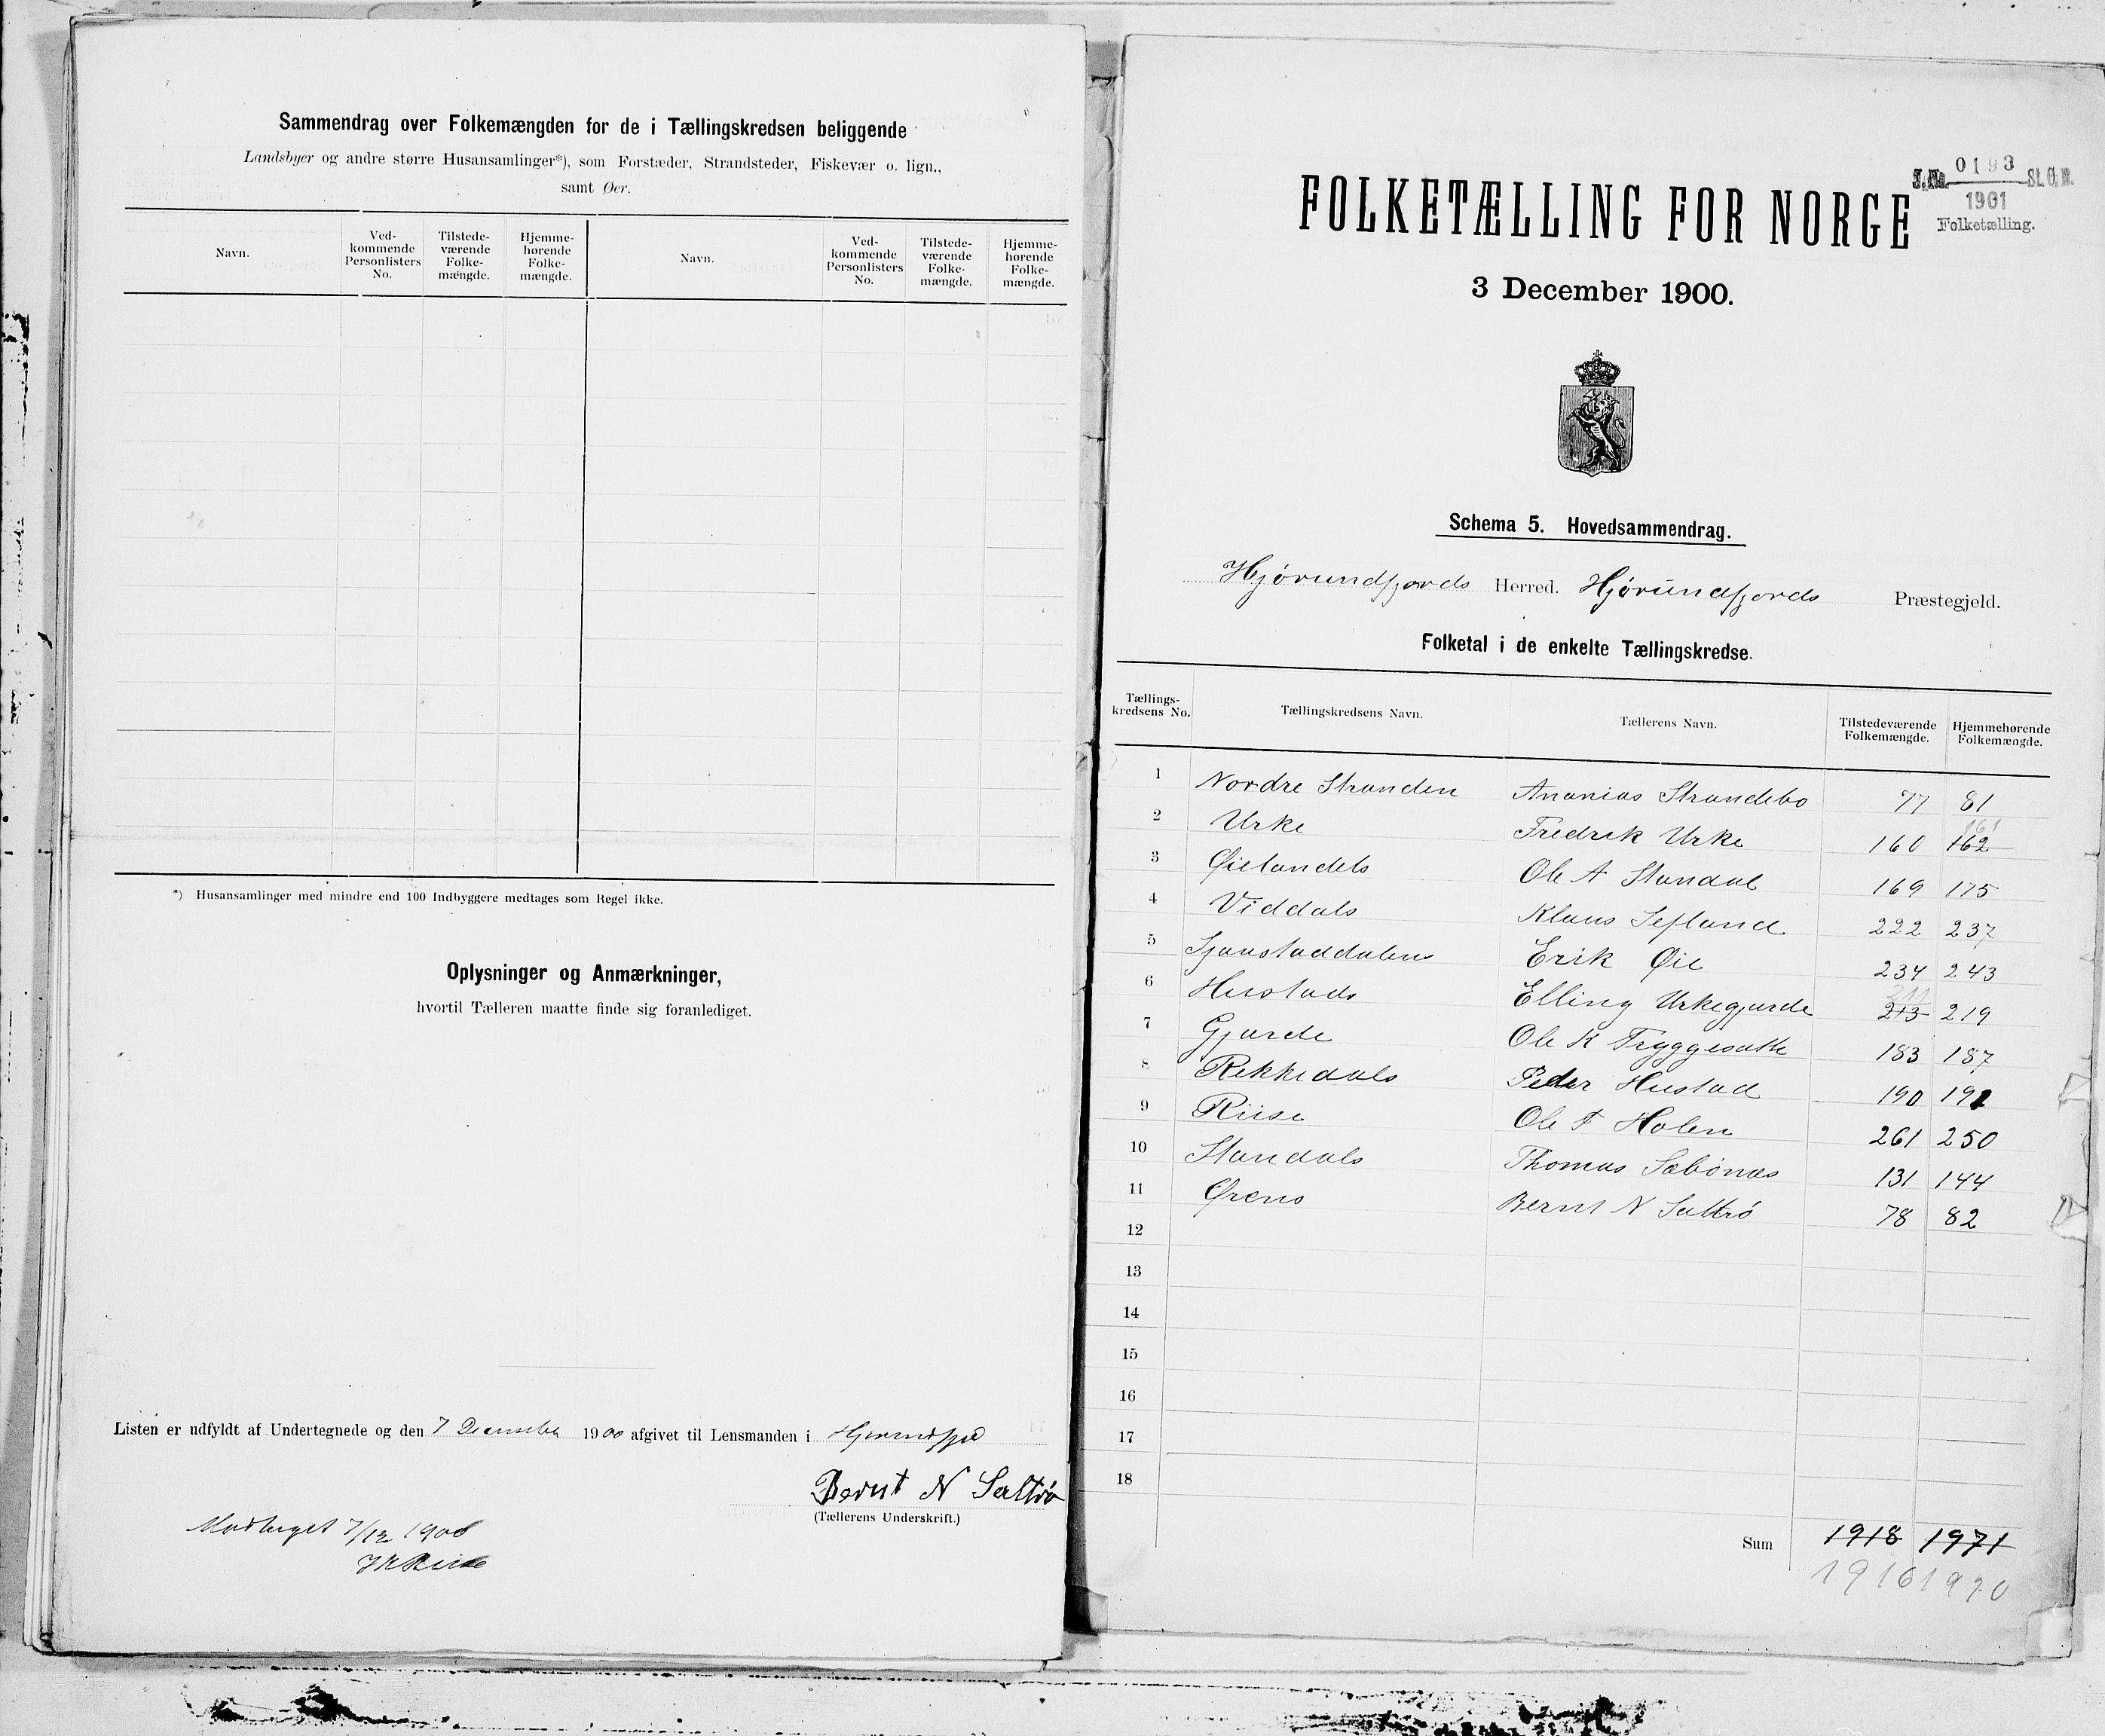 Sammendrag over Folkemængden for de i Tællingskredsen beliggende
Landsbyer og andre større Husansamlinger*), som Forstæder, Strandsteder, Fiskevær o. lign.,
samt Øer.
Navn. Ved-kommende Personlisters No. Tilstede-værende Folke-mængde. Hjemme-hørende Folke-mængde. Navn. Ved-kommende Personlisters No. Tilstede-værende Folke-mængde. Hjemme-hørende Folke-mængde.
*) Husansamlinger med mindre end 100 Indbyggere medtages som Regel ikke.
Oplysninger og Anmærkninger,
hvortil Tælleren maatte finde sig foranlediget.
Listen er udfyldt af Undertegnede og den 7 December 1900 afgivet til Lensmanden i Hjørundfjord
Bernt N Sæltrø
(Tællerens Underskrift.)
Modtaget 7/12 1900
J.No. 0193 St.C.B.
1901
Folketælling.
FOLKETÆLLING FOR NORGE
3 December 1900.
Schema 5. Hovedsammendrag.
Hjørundfjords Herred. Hjørundfjords Præstegjeld.
Folketal i de enkelte Tællingskredse.
Tællings-kredsens No. Tællingskredsens Navn. Tællerens Navn. Tilstedeværende Folkemængde. Hjemmehørende Folkemængde.
1 Nordre Stranden Ananias Strandebo 77 81
161
2 Urke Fredrik Urke 160 162
3 Øielandets Ole A Standal 169 175
4 Viddals Klaus Sefland 222 237
5 Sjaustaddalens Erik Øie 234 243
211
6 Hustads Elling Urkegjarde 213 219
7 Gjærde Ole K Tryggesætte 183 187
8 Rekkedals Peder Hustad 190 191
9 Riise Ole T Holen 261 250
10 Standals Thomas Sæbønæs 131 144
11 Ørens Bernt N Sæltrø 78 82
12
13
14
15
16
17
18
Sum 1918 1971
1916 1970